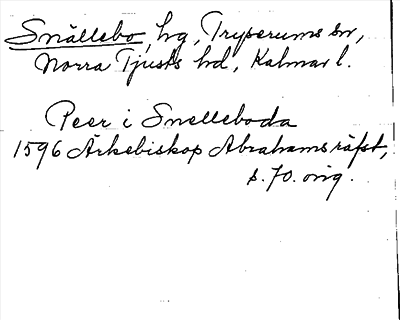 Snällebo, hg, Tryserums sn,
Norra Tjusts hd, Kalmar l.
Peer i Snelleboda
1596 Ärkebiskop Abrahams räfst,
s. 70. orig.